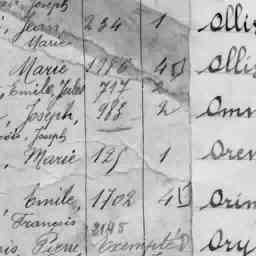 Joseph
, Jean, 234 1 Alli
Marie
Marie 1986 4 Alli
, Emile, Jules 717 2
, Joseph, 988 2 Amm
Joseph
, Marie 125 1 Aren
Emile, 1702 4 Arin
François 2145
Pierre Exempté Ary